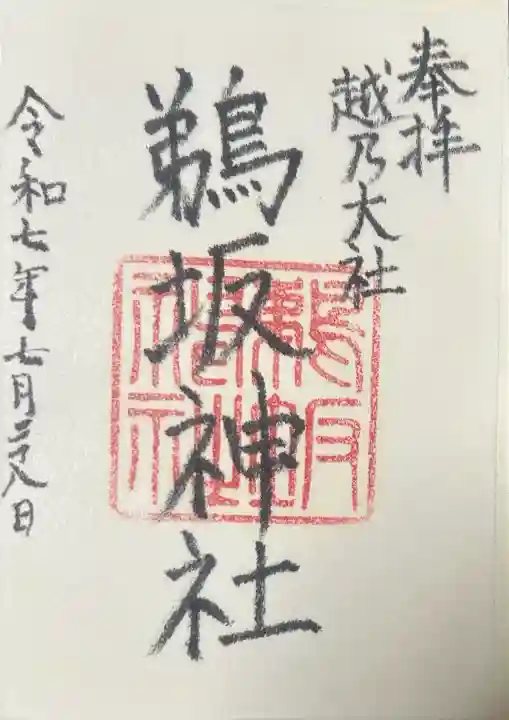 奉拝
越乃大社
鵜坂神社
令和七年七月二十八日